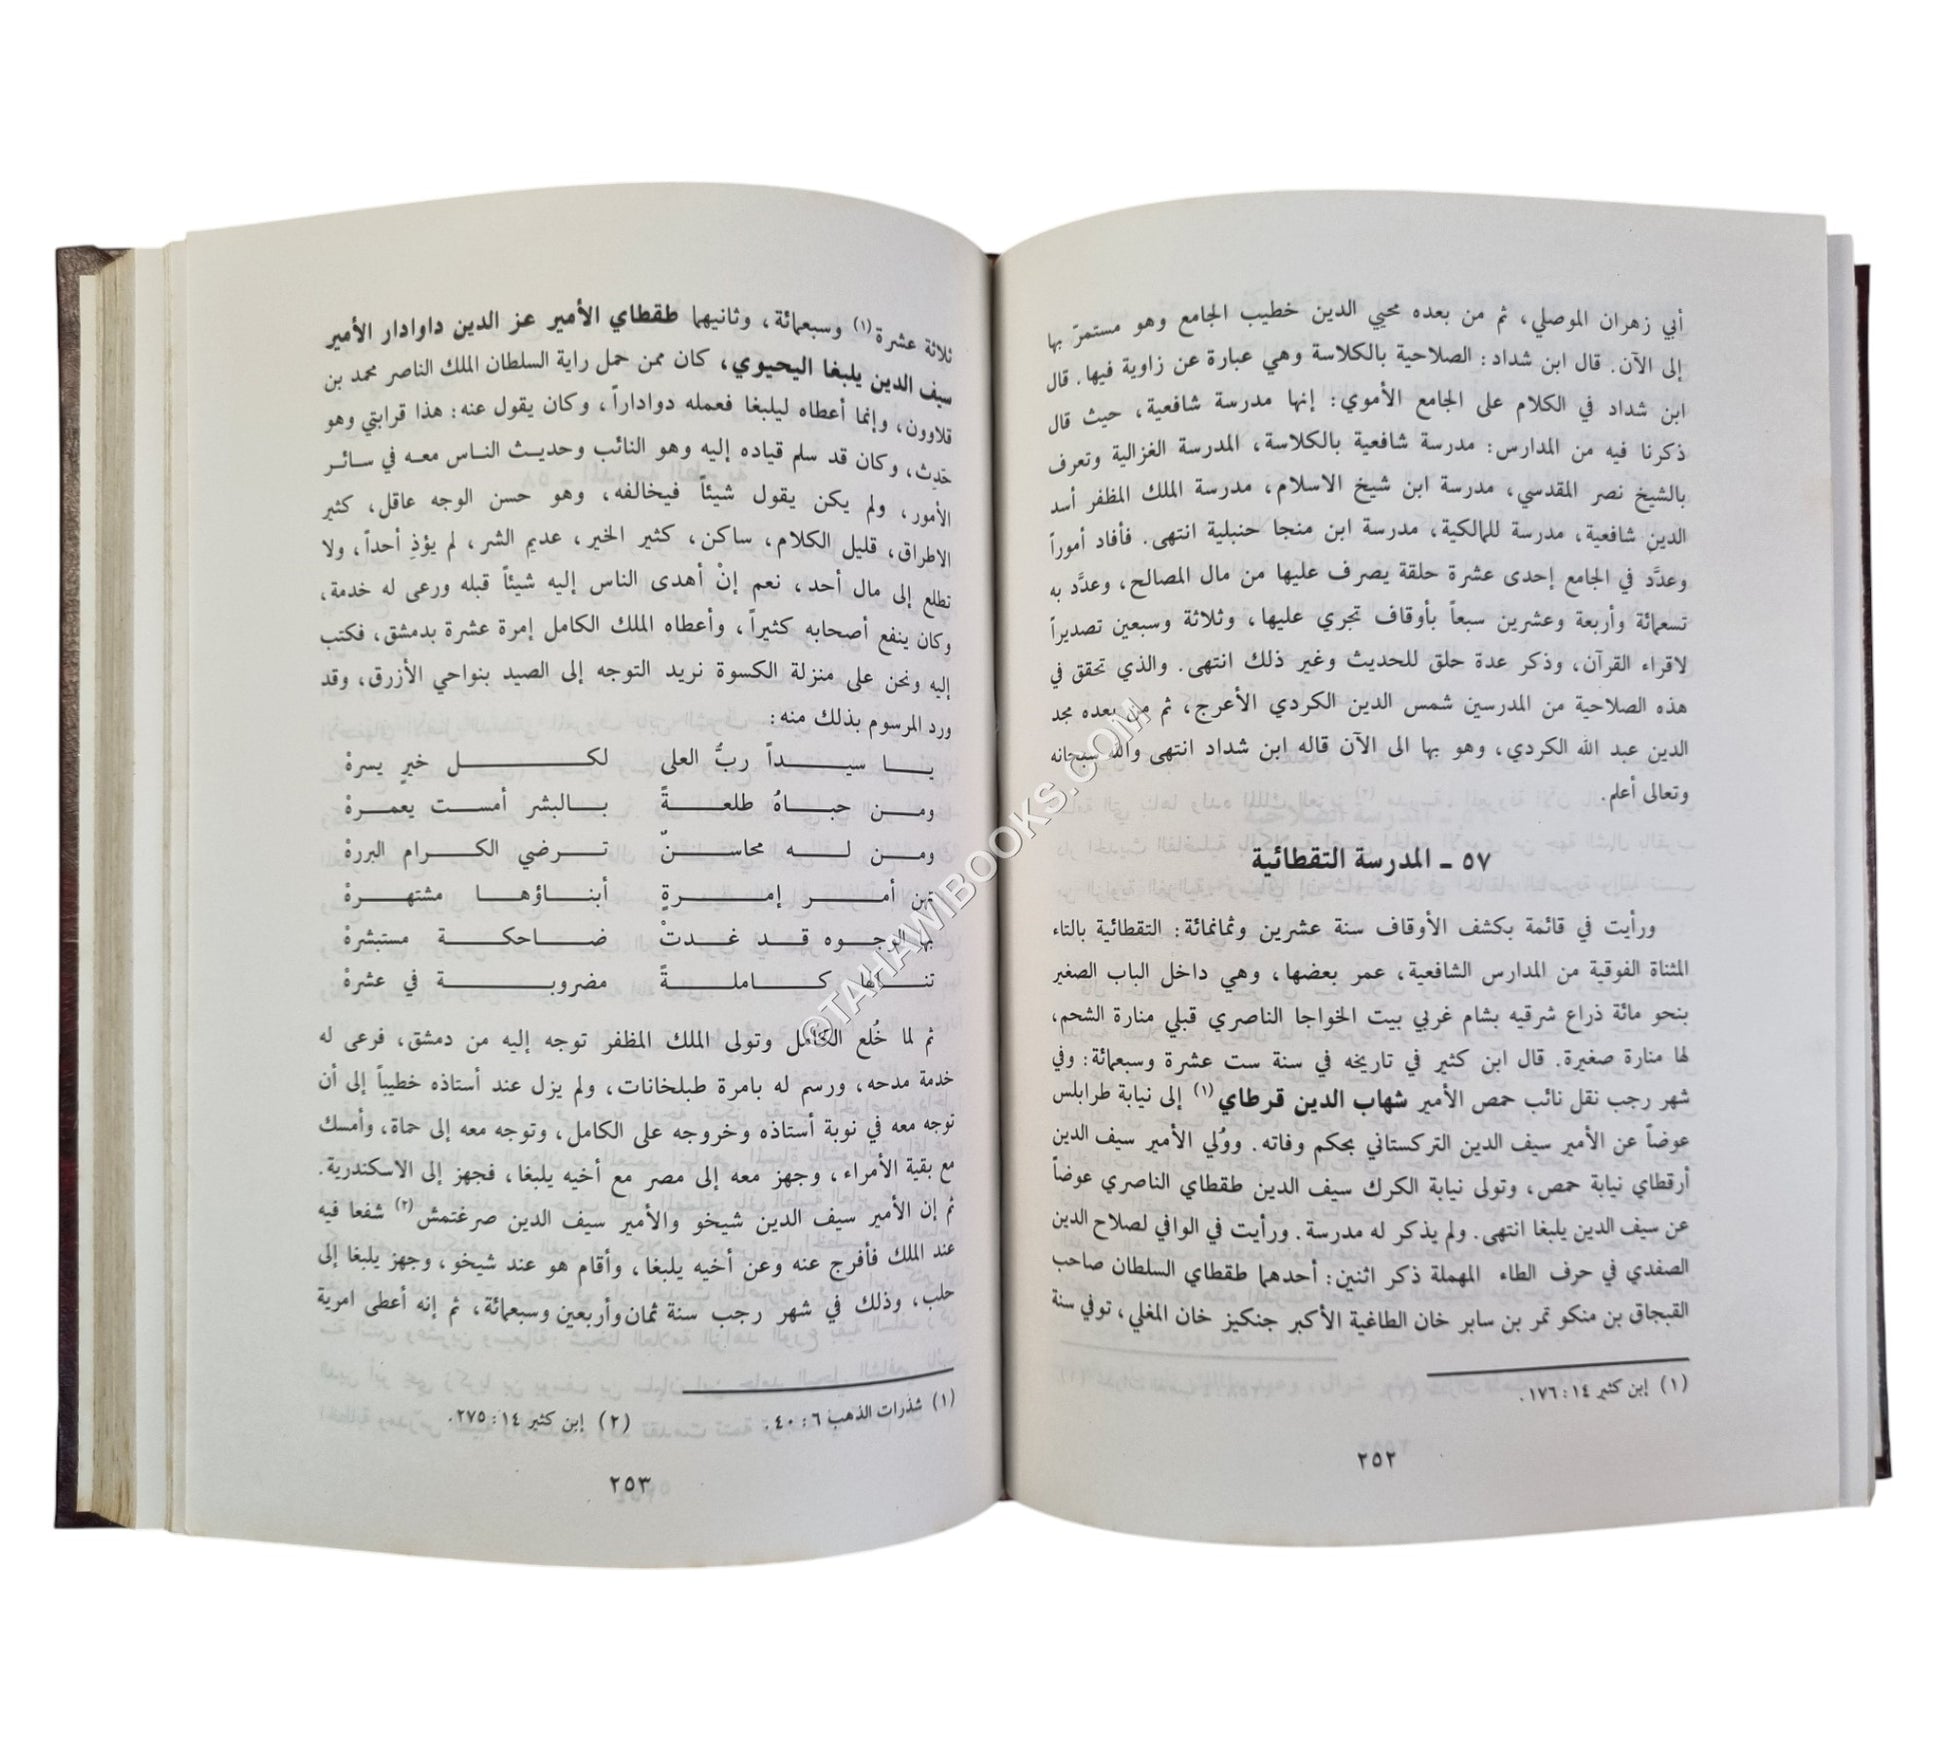 أبي زهران الموصلي، ثم من بعده محيي الدين خطيب الجامع وهو مستمرّ بها
إلى الآن. قال ابن شداد: الصلاحية بالكلاسة وهي عبارة عن زاوية فيها. قال
ابن شداد في الكلام على الجامع الأموي: إنها مدرسة شافعية، حيث قال
ذكرنا فيه من المدارس: مدرسة شافعية بالكلاسة، المدرسة الغزالية وتعرف
بالشيخ نصر المقدسي، مدرسة ابن شيخ الاسلام، مدرسة الملك المظفر أسد
الدين شافعية، مدرسة للمالكية، مدرسة ابن منجا حنبلية انتهى. فأفاد أموراً
وعدَّد في الجامع إحدى عشرة حلقة يصرف عليها من مال المصالح، وعدَّد به
تسعمائة وأربعة وعشرين سبعاً بأوقاف تجري عليها، وثلاثة وسبعين تصديراً
لاقراء القرآن، وذكر عدة حلق للحديث وغير ذلك انتهى. والذي تحقق في
هذه الصلاحية من المدرسين شمس الدين الكردي الأعرج، ثم من بعده مجد
الدين عبد الله الكردي، وهو بها الى الآن قاله ابن شداد انتهى والله سبحانه
وتعالى أعلم.
٥٧ - المدرسة التقطائية
ورأيت في قائمة بكشف الأوقاف سنة عشرين وثمانمائة: التقطائية بالتاء
المثناة الفوقية من المدارس الشافعية، عمر بعضها، وهي داخل الباب الصغير
بنحو مائة ذراع شرقيه بشام غربي بيت الخواجا الناصري قبلي منارة الشحم،
لها منارة صغيرة. قال ابن كثير في تاريخه في سنة ست عشرة وسبعمائة: وفي
شهر رجب نقل نائب حمص الأمير شهاب الدين قرطاي (١) إلى نيابة طرابلس
عوضاً عن الأمير سيف الدين التركستاني بحكم وفاته. ووُلي الأمير سيف الدين
أرقطاي نيابة حمص، وتولى نيابة الكرك سيف الدين طقطاي الناصري عوضاً
عن سيف الدين يلبغا انتهى. ولم يذكر له مدرسة. ورأيت في الوافي لصلاح الدين
الصفدي في حرف الطاء المهملة ذكر اثنين: أحدهما طقطاي السلطان صاحب
القبجاق بن منكو تمر بن سابر خان الطاغية الأكبر جنكيز خان المغلي، توفي سنة
(١) إبن كثير ١٤: ١٧٦.
٢٥٢
ثلاثة عشرة (١) وسبعمائة، وثانيهما طقطاي الأمير عز الدين داوادار الأمير
سيف الدين يلبغا اليحيوي، كان ممن حمل راية السلطان الملك الناصر محمد بن
قلاوون، وإنما أعطاه ليلبغا فعمله دواداراً، وكان يقول عنه: هذا قرابتي وهو
حَدِث، وكان قد سلم قياده إليه وهو النائب وحديث الناس معه في سائر
الأمور، ولم يكن يقول شيئاً فيخالفه، وهو حسن الوجه عاقل، كثير
الاطراق، قليل الكلام، ساكن، كثير الخير، عديم الشر، لم يؤذِ أحداً، ولا
تطلع إلى مال أحد، نعم إنْ أهدى الناس إليه شيئاً قبله ورعى له خدمة،
وكان ينفع أصحابه كثيراً، وأعطاه الملك الكامل إمرة عشرة بدمشق، فكتب
إليه ونحن على منزلة الكسوة نريد التوجه إلى الصيد بنواحي الأزرق، وقد
ورد المرسوم بذلك منه:
يا سيداً ربُّ العلى لكل خيرٍ يسرهْ
ومن حباهُ طلعةً بالبشر أمست يعمرهْ
ومن له محاسنٌ ترضي الكرام البررهْ
تهن أمر إمرةٍ أبناؤها مشتهرهْ
بها الوجوه قد غدتْ ضاحكة مستبشرهْ
تنالها كاملةً مضروبة في عشرهْ
ثم لما خُلع الكامل وتولى الملك المظفر توجه إليه من دمشق، فرعى له
خدمة مدحه، ورسم له بامرة طبلخانات، ولم يزل عند أستاذه خطيباً إلى أن
توجه معه في نوبة أستاذه وخروجه على الكامل، وتوجه معه إلى حماة، وأمسك
مع بقية الأمراء، وجهز معه إلى مصر مع أخيه يلبغا، فجهز إلى الاسكندرية.
ثم إن الأمير سيف الدين شيخو والأمير سيف الدين صرغتمش (٢) شفعا فيه
عند الملك فأفرج عنه وعن أخيه يلبغا، وأقام هو عند شيخو، وجهز يلبغا إلى
حلب، وذلك في شهر رجب سنة ثمان وأربعين وسبعمائة، ثم إنه أعطى امرية
(١) شذرات الذهب ٦: ٤٠. (٢) إبن كثير ١٤: ٢٧٥.
٢٥٣
©TAHAMBOOKS.COM